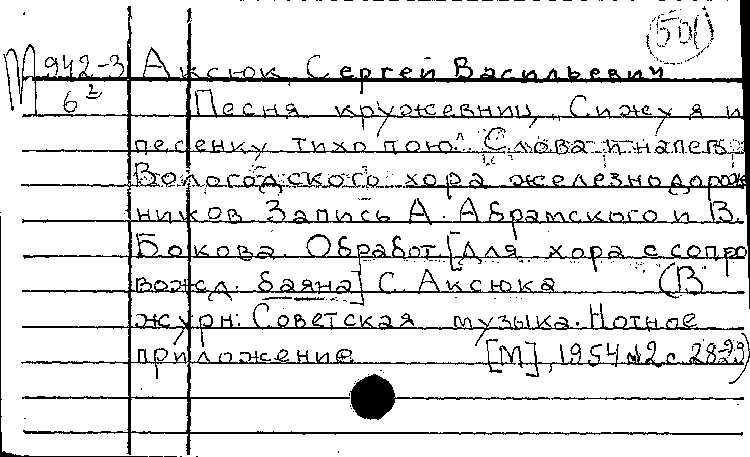 501
М 942-3 Аксюк, Сергей Васильевич
6² Песня кружевниц „Сижу я и
песенку тихо пою". Слова и напев
Вологодского хора железнодорож
ников. Запись А. Абрамского и В.
Бокова. Обработ. [для хора с сопро
вожд. баяна] С. Аксюка (В
журн: Советская музыка. Нотное
приложение [М], 1954 №2 с. 28-29)